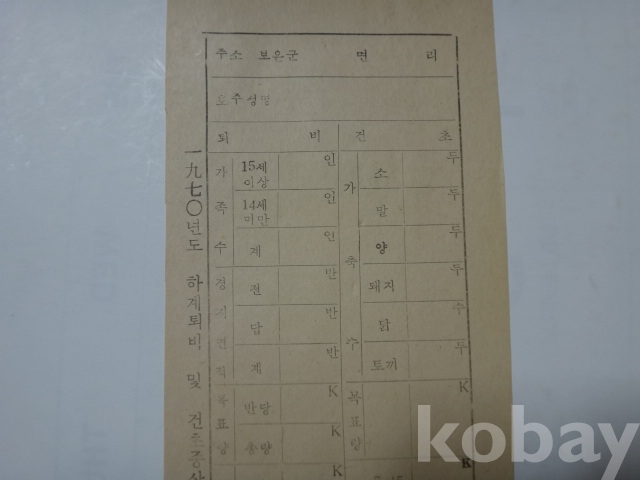 주소 보은군 면 리
호주성명
퇴 비 건 초
가족수 15세이상 인 가축수 소 두
14세미만 인 말 두
계 인 양 두
경지면적 전 반 돼지 두
답 반 닭 수
계 반 토끼 두
목표량 반당 K 목표량 K
총량 K
K K
一九七〇년도 하계퇴비 및 건초증산
kobay